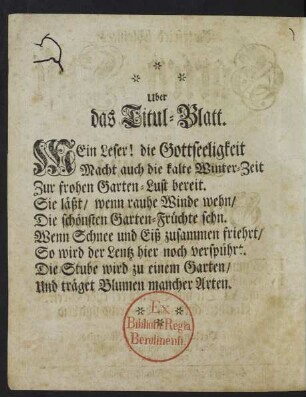 Uber
das Titul-Blatt.
MEin Leser! die Gottseeligkeit
Macht auch die kalte Winter-Zeit
Zur frohen Garten-Lust bereit.
Sie läßt/ wenn rauhe Winde wehn/
Die schönsten Garten-Früchte sehn.
Wenn Schnee und Eiß zusammen friehrt/
So wird der Lentz hier noch verspührt.
Die Stube wird zu einem Garten/
Und träget Blumen mancher Arten.
Ex
Biblioth. Regia
Berolinensi.